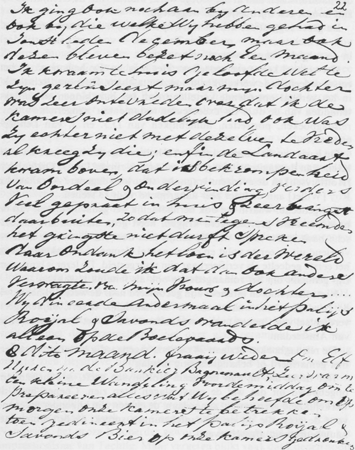 22
Ik ging ook noch aan bij anderen en
ook bij die welke Wij hebben gehad in
December maar ook
deze bleven bezet noch een Maand.
Ik kwam te huis geloofde Wel te
Zijn maar mijn dochter
was zeer ontevreden over dat ik de
kamer niet had ook Was
Zij echter niet met dezelve te Vreden
al kreeg Zij die, enfin de Landaart
kwam boven, dat is bekrompenheid
Van Oordeel & Ondervinding Verders
Veel gepraat in huis & zeer
daar buiten, zodat men tegen Vreemden
het niet durft Spreken
daar Ondank het loon is der Wereld
Waarom Zoude ik dat dan ook anders
Verwagte Van mijn Vrouw & dochter....
Wij dineerde Andermaal in het palijs
Roijal & Savonds wandelde ik
alleen op de Boelevaards
8 dito Maand. fraaij Weder
de Bankier
een kleine Wandeling Voordemiddag om te
Prepareeren alles wat Wij behoefde om Op
morgen onze kamers te betrekken
toen gedineert in het palijs Roijal &
Savonds Bier op onze kamers gedronken